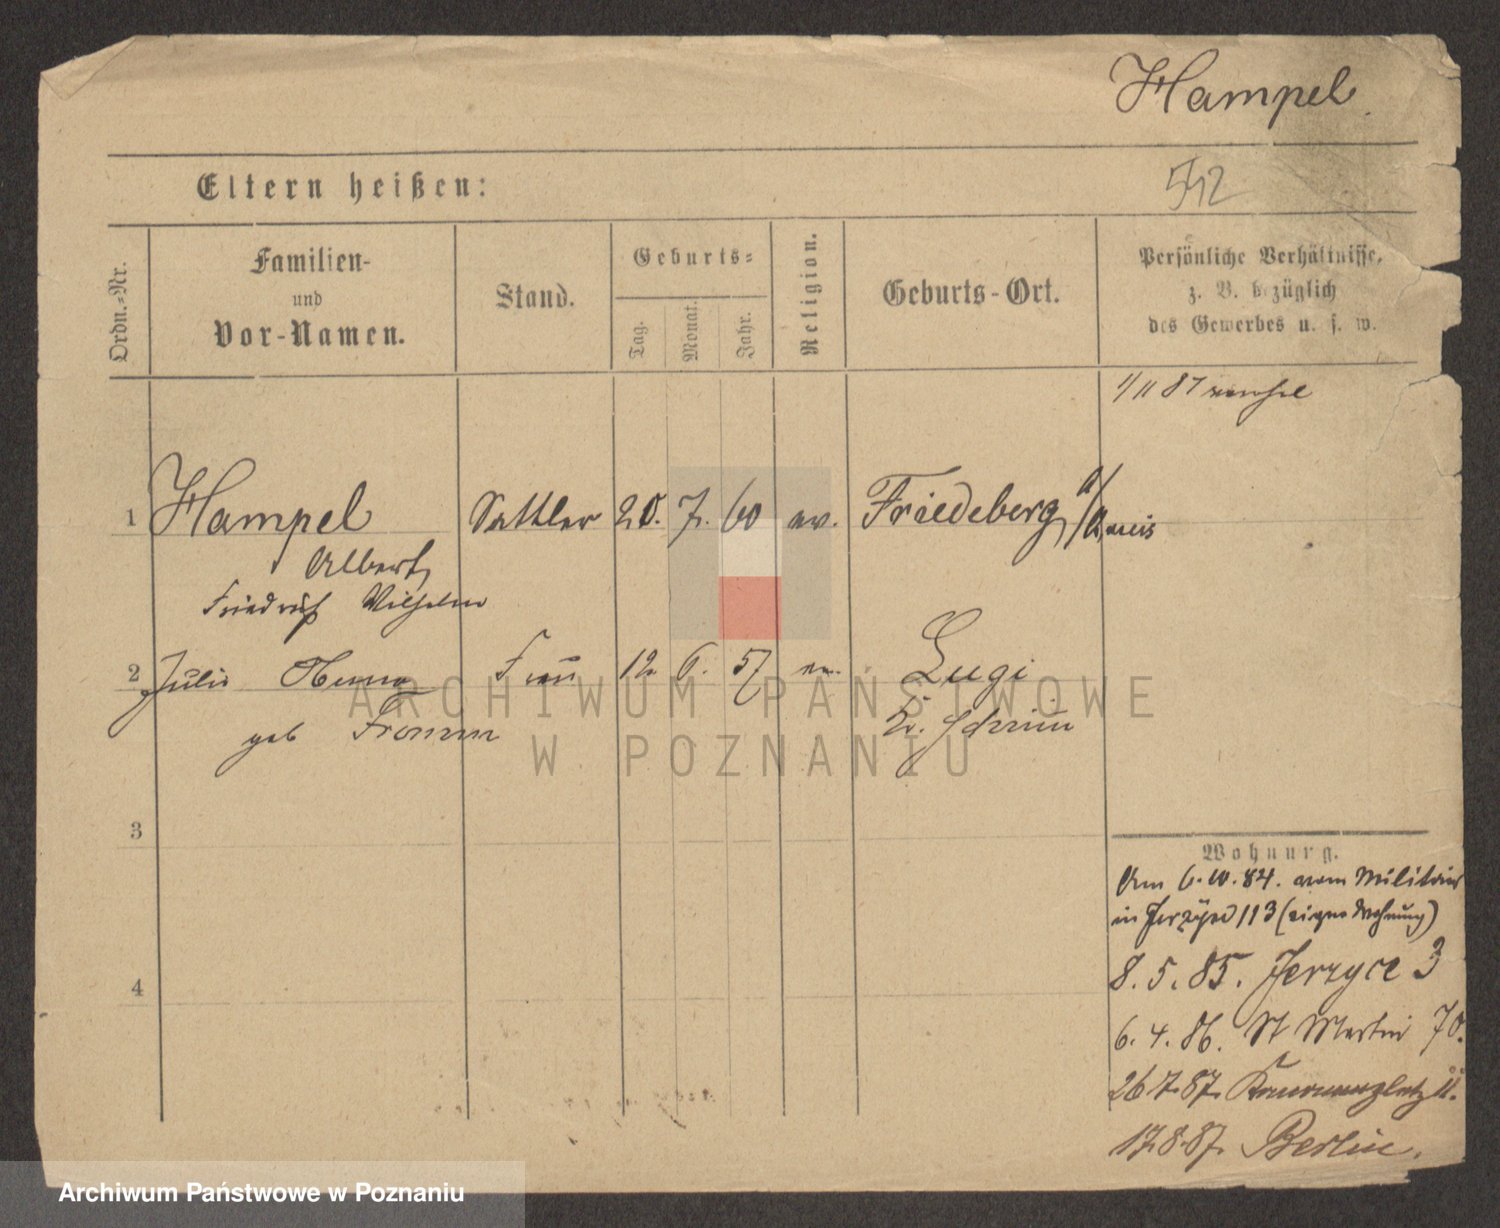 Hampel
512
Eltern heißen:
Ordn.-Nr.
Familien-
und
Vor-Namen.
Stand.
Geburts-
Tag.
Monat.
Jahr.
Religion.
Geburts-Ort.
Persönliche Verhältnisse,
z. B. bezüglich
des Gewerbes u. s. w.
1/11 87
1 Hampel Sattler 20. 7. 60 ev. Friedeberg a/Queis
Albert
Friedrich Wilhelm
2 Julie Frau 12 6. 57 ev. Lugi
geb Fromm Kr. Schrim
ARCHIWUM PAŃSTWOWE
W POZNANIU
3
4
Wohnung.
Am 6.10.84. vom Militair
in Jerzyce 113 (eigne Wohnung)
8. 5. 85. Jerzyce 3
6. 4. 86. St Martin 70.
26 7. 87. Kanonenplatz 11.
17.8.87. Berlin.
Archiwum Państwowe w Poznaniu